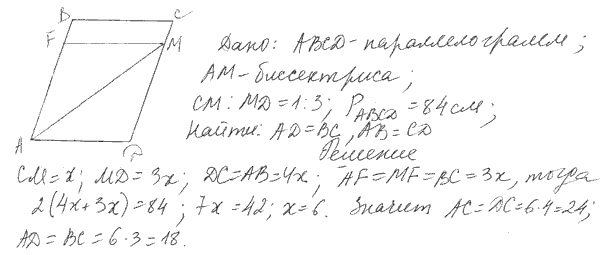 B C
F M
A D
Дано: ABCD-параллелограмм;
AM-биссектриса;
CM:MD=1:3; P_ABCD=84см;
Найти: AD=BC, AB=CD
Решение
CM=x; MD=3x; DC=AB=4x; AF=MF=BC=3x, тогда
2(4x+3x)=84; 7x=42; x=6. Значит AC=DC=6·4=24;
AD=BC=6·3=18.